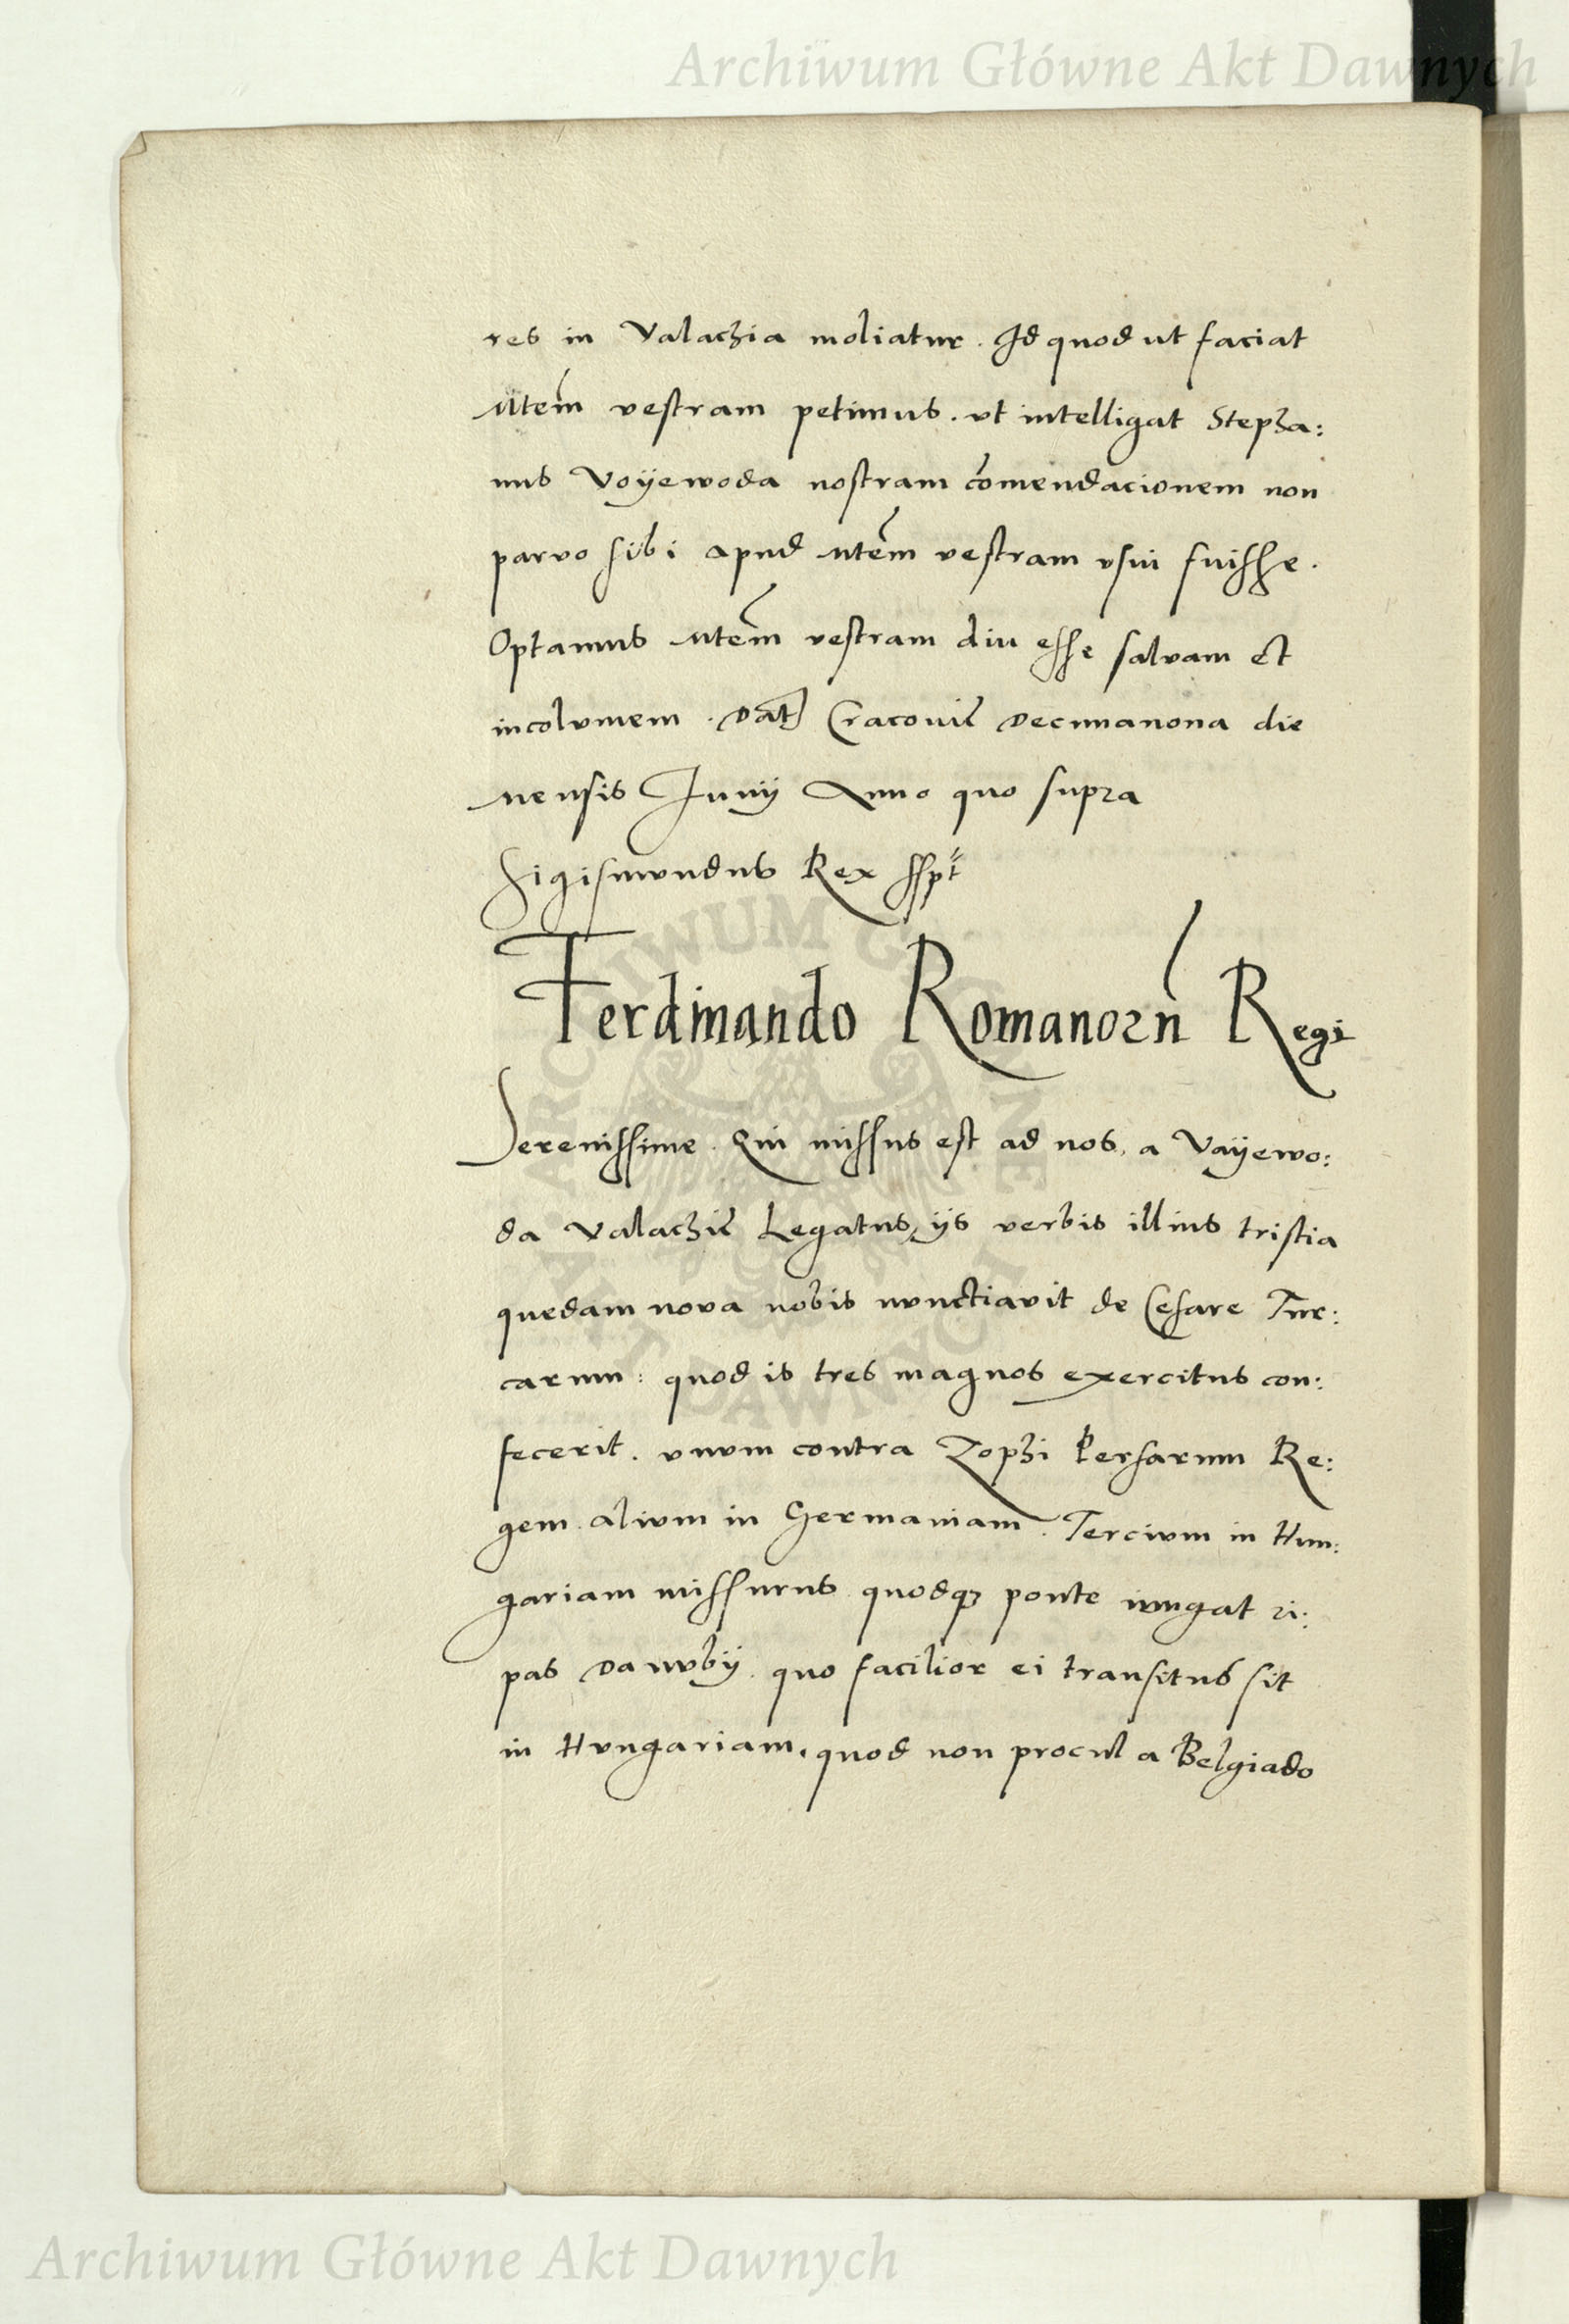 Archiwum Główne Akt Dawnych
res in Valachia moliatur. Id quod ut faciat
Mtem vestram petimus. vt intelligat Stepha:
nus Voÿewoda nostram comendacionem non
parvo sibi apud Mtem vestram vsui fuisse.
Optamus Mtem vestram diu esse salvam et
incolvmem. Dat Cracovie Decimanona die
mensis Junÿ Anno quo supra
Sigismvndus Rex sspt
Ferdinando Romanorum Regi
Serenissime. Qui missus est ad nos, a Vaÿewo:
da Valachie Legatus, ÿs verbis illius tristia
quedam nova nobis nvnctiavit de Cesare Tur:
carum: quod is tres magnos exercitus con:
fecerit. vnvm contra Zophi Persarum Re:
gem. alivm in Germaniam. Tercivm in Hun:
gariam missurus quodq; ponte iungat ri:
pas Danvbÿ. quo facilior ei transitus sit
in Hvngariam, quod non procul a Belgiado
ARCHIWUM GŁÓWNE AKT DAWNYCH
Archiwum Główne Akt Dawnych